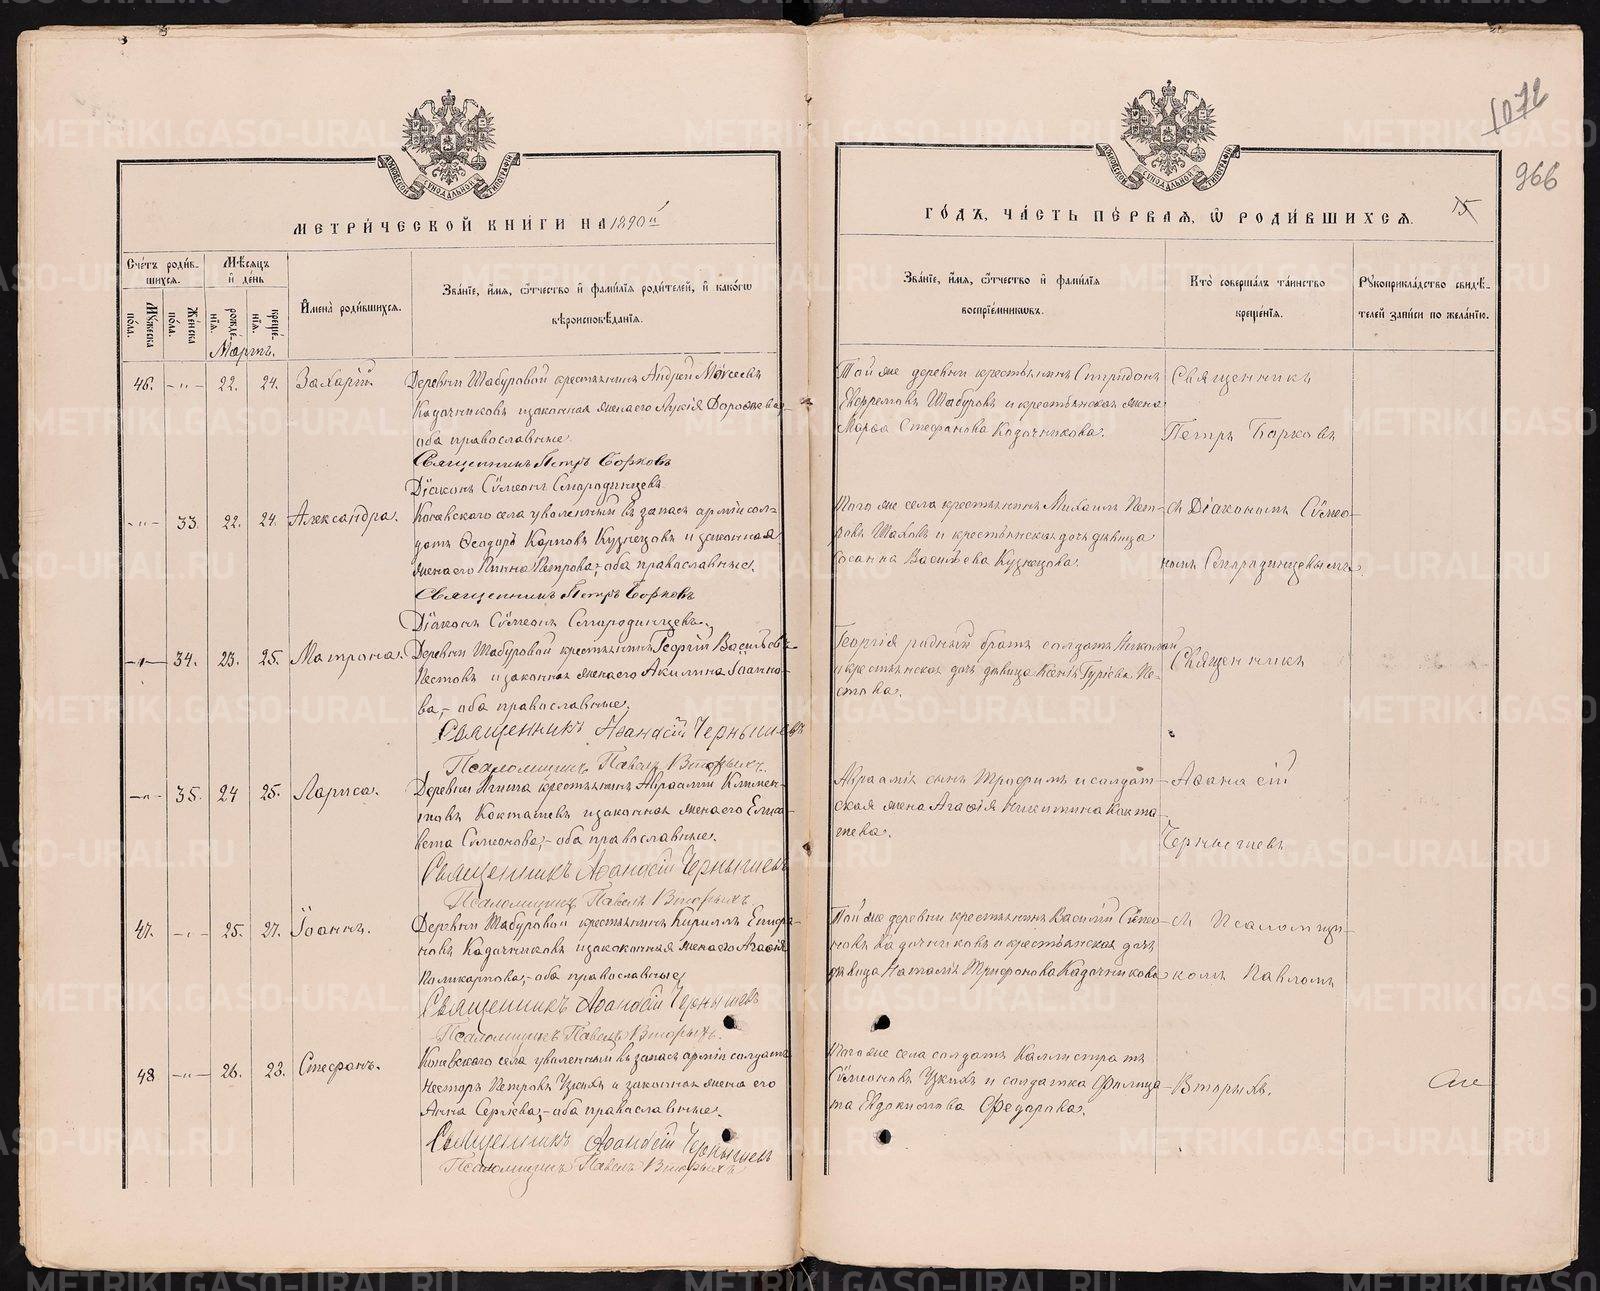 МЕТРИ́ЧЕСКОЙ КНИ́ГИ НА 1890й
Сче́тъ роди́в-
шихся.
Мѣ́сяцъ
и҆ де́нь
Мꙋ́жеска
по́ла.
Же́нска
по́ла.
рожде́-
нїѧ.
креще́-
нїѧ.
И҆мена̀ роди́вшихсѧ.
Зва́нїе, и҆́мѧ, ѻ҆́тчество и҆ фами́лїѧ роди́телей, и҆ како́гѡ
вѣроисповѣ́данїѧ.
Мартъ.
46. -"- 22. 24. Захарій.
Деревни Шабуровой крестьянинъ Андрей Моисеевъ
Кадочниковъ и законная жена его Лукія Дорофеева,
оба православные.
Священникъ Петръ Борковъ
Діаконъ Сѵмеонъ Смородинцевъ
-"- 33. 22. 24. Александра.
Коневскаго села уволенный въ запасъ арміи сол-
датъ Ѳеодоръ Карповъ Кузнецовъ и законная
жена его Петрова, оба православные.
Священникъ Петръ Борковъ
Діаконъ Сѵмеонъ Смородинцевъ.
-"- 34. 23. 25. Матрона.
Деревни Шабуровой крестьянинъ Георгій Васильевъ
Пестовъ и законная жена его Акилина Іоанно-
ва, оба православные.
Священникъ Аѳанасій Чернышевъ
Псаломщикъ Павелъ Вторыхъ.
-"- 35. 24 25. Лариса.
Деревни крестьянинъ Авраамій Климен-
товъ Кокташевъ и законная жена его Елиса-
вета Сѵмеонова, оба православные.
Священникъ Аѳанасій Чернышевъ
Псаломщикъ Павелъ Вторыхъ
47. -"- 25. 27. Іоаннъ.
Деревни Шабуровой крестьянинъ Кириллъ
Кадочниковъ и законная жена его Агаѳія
Поликарпова, оба православные
Священникъ Аѳанасій Чернышевъ
Псаломщикъ Павелъ Вторыхъ.
48 -"- 26. 23. Стефанъ.
Коневскаго села уволенный въ запасъ арміи солдатъ
Несторъ Петровъ Узкихъ и законная жена его
Анна Сергіева, оба православные.
Священникъ Аѳанасій Чернышевъ
Псаломщикъ Павелъ Вторыхъ
1072
966
15
ГО́ДЪ, ЧА́СТЬ ПЕ́РВАЯ, Ѡ РОДИ́ВШИХСЯ.
Зва́нїе, и҆́мѧ, ѻ҆́тчество и҆ фами́лїѧ
воспрїе́мникѡвъ.
Кто̀ соверша́лъ та́инство
креще́нїѧ.
Рꙋкоприкла́дство свидѣ́-
телей за́писи по жела́нїю.
Той же деревни крестьянинъ Спиридонъ
Евфремовъ Шабуровъ и крестьянская жена
Марѳа Стефанова Кадочникова.
Священникъ
Петръ Борковъ
Того же села крестьянинъ Михаилъ Пет-
ровъ и крестьянская дочь дѣвица
Васильева Кузнецова.
съ Діакономъ Сѵмео-
номъ Смородинцевымъ.
Георгія родный братъ солдатъ Николай
и крестьянская дочь дѣвица Ксенія Гуріева Пе-
стова.
Священникъ
Авраамія сынъ Трофимъ и солдат-
ская жена Агаѳія Никитина Кокта-
шева.
Аѳанасій
Чернышевъ
Той же деревни крестьянинъ Василій Сѵмео-
новъ Кадочниковъ и крестьянская дочь
дѣвица Наталія Трифонова Кадочникова
съ Псаломщи-
комъ Павломъ
Того же села солдатъ Каллистратъ
Сѵмеоновъ Узкихъ и солдатка Филица-
та Евдокимова Ѳедорова.
Вторыхъ.
METRIKI.GASO-URAL.RU